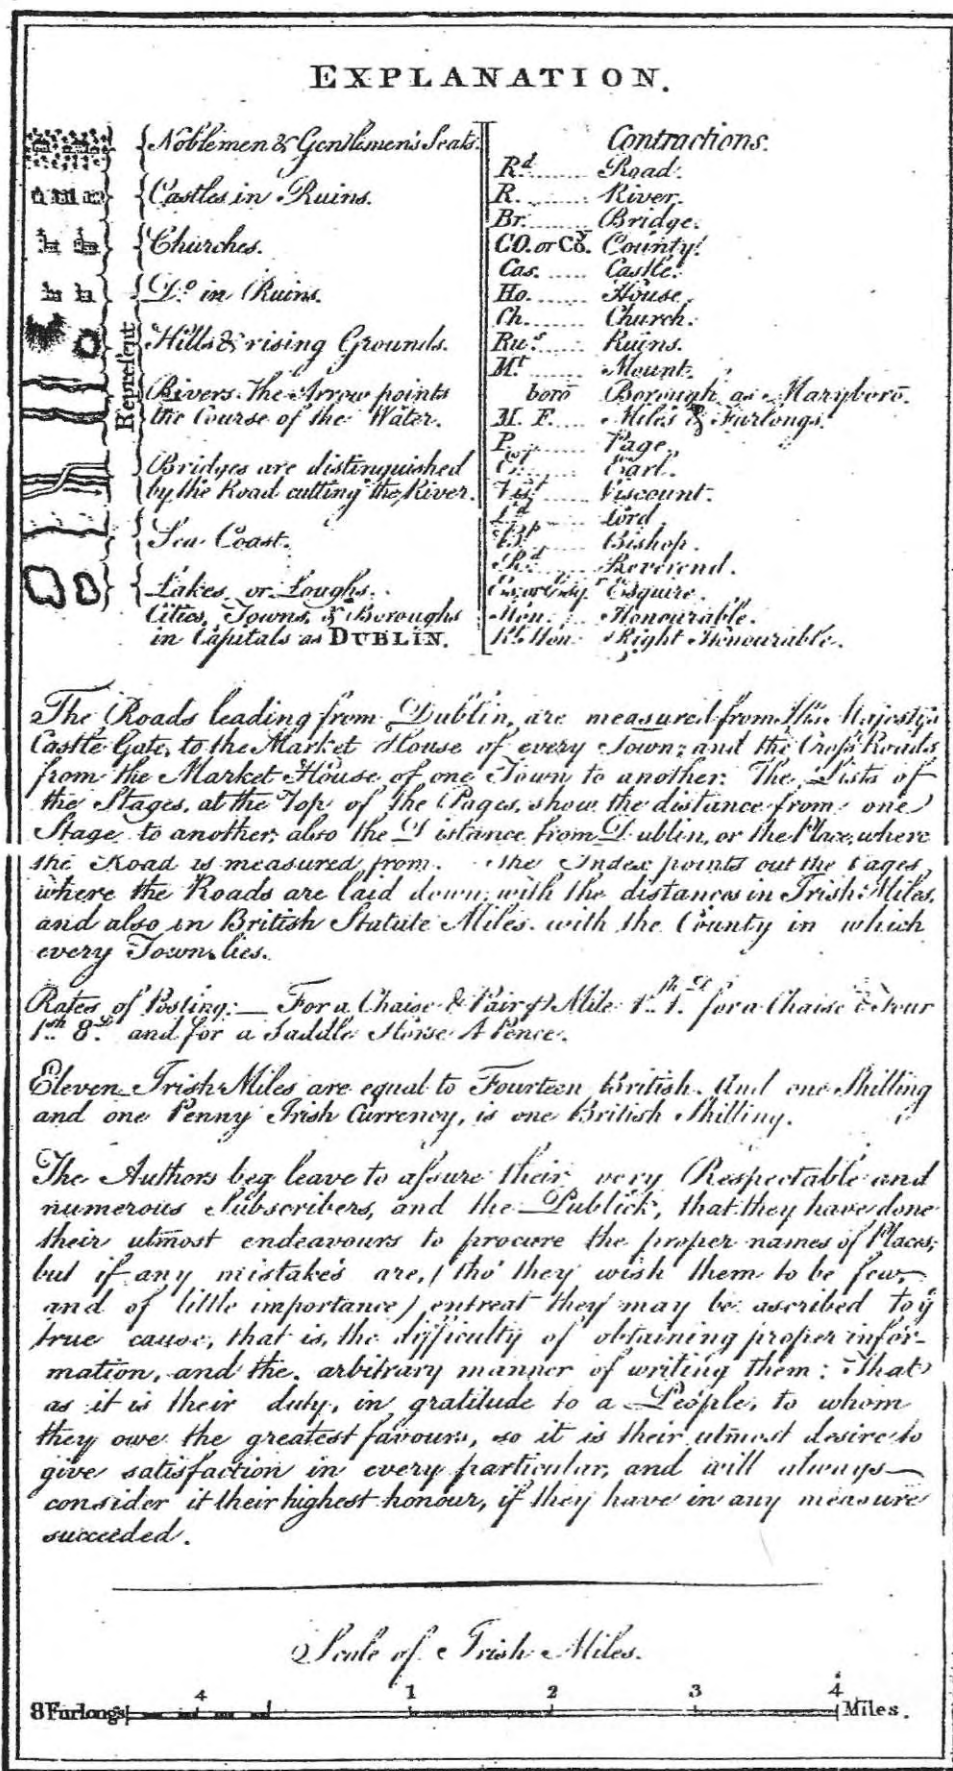 EXPLANATION.
Noblemen & Gentlemen's Seats.
Castles in Ruins.
Churches.
Do. in Ruins.
Hills & rising Grounds.
Rivers. The Arrow points
the Course of the Water.
Bridges are distinguished
by the Road cutting the River.
Sea Coast.
Lakes, or Loughs.
Cities, Towns, & Boroughs
in Capitals as DUBLIN.
Represent
Contractions.
Rd. Road.
R. River.
Br. Bridge.
CO. or Coy. County.
Cas. Castle.
Ho. House.
Ch. Church.
Rus. Ruins.
Mt. Mount.
boro Borough, as Maryboro.
M. F. Miles & Furlongs.
P. Page.
Earl.
Vist. Viscount.
Ld. Lord.
Bp. Bishop.
Rd. Reverend.
Esq. or Esqr. Esquire.
Hon. Honourable.
Rt. Hon. Right Honourable.
The Roads leading from Dublin, are measured from His Majesty's
Castle Gate, to the Market House of every Town; and the Cross Roads
from the Market House of one Town to another: The Lists of
the Stages, at the Top of the Pages, show the distance from one
Stage to another; also the Distance from Dublin, or the Place, where
the Road is measured from. The Index points out the Pages,
where the Roads are laid down; with the distances in Irish Miles,
and also in British Statute Miles. with the County in which
every Town lies.
Rates of Posting: — For a Chaise & Pair ⅌ Mile 1sh. 1d. for a Chaise & Four
1sh. 8d. and for a Saddle Horse 4 Pence.
Eleven Irish Miles are equal to Fourteen British. And one Shilling
and one Penny Irish Currency, is one British Shilling.
The Authors beg leave to assure their very Respectable and
numerous Subscribers, and the Publick, that they have done
their utmost endeavours to procure the proper names of Places;
but if any mistakes are, (tho' they wish them to be few,
and of little importance) entreat they may be ascribed to ye
true cause, that is, the difficulty of obtaining proper infor-
mation, and the arbitrary manner of writing them: That
as it is their duty, in gratitude to a People, to whom
they owe the greatest favours, so it is their utmost desire to
give satisfaction in every particular, and will always
consider it their highest honour, if they have in any measure
succeeded.
Scale of Irish Miles.
8 Furlongs 4 1 2 3 4 Miles.